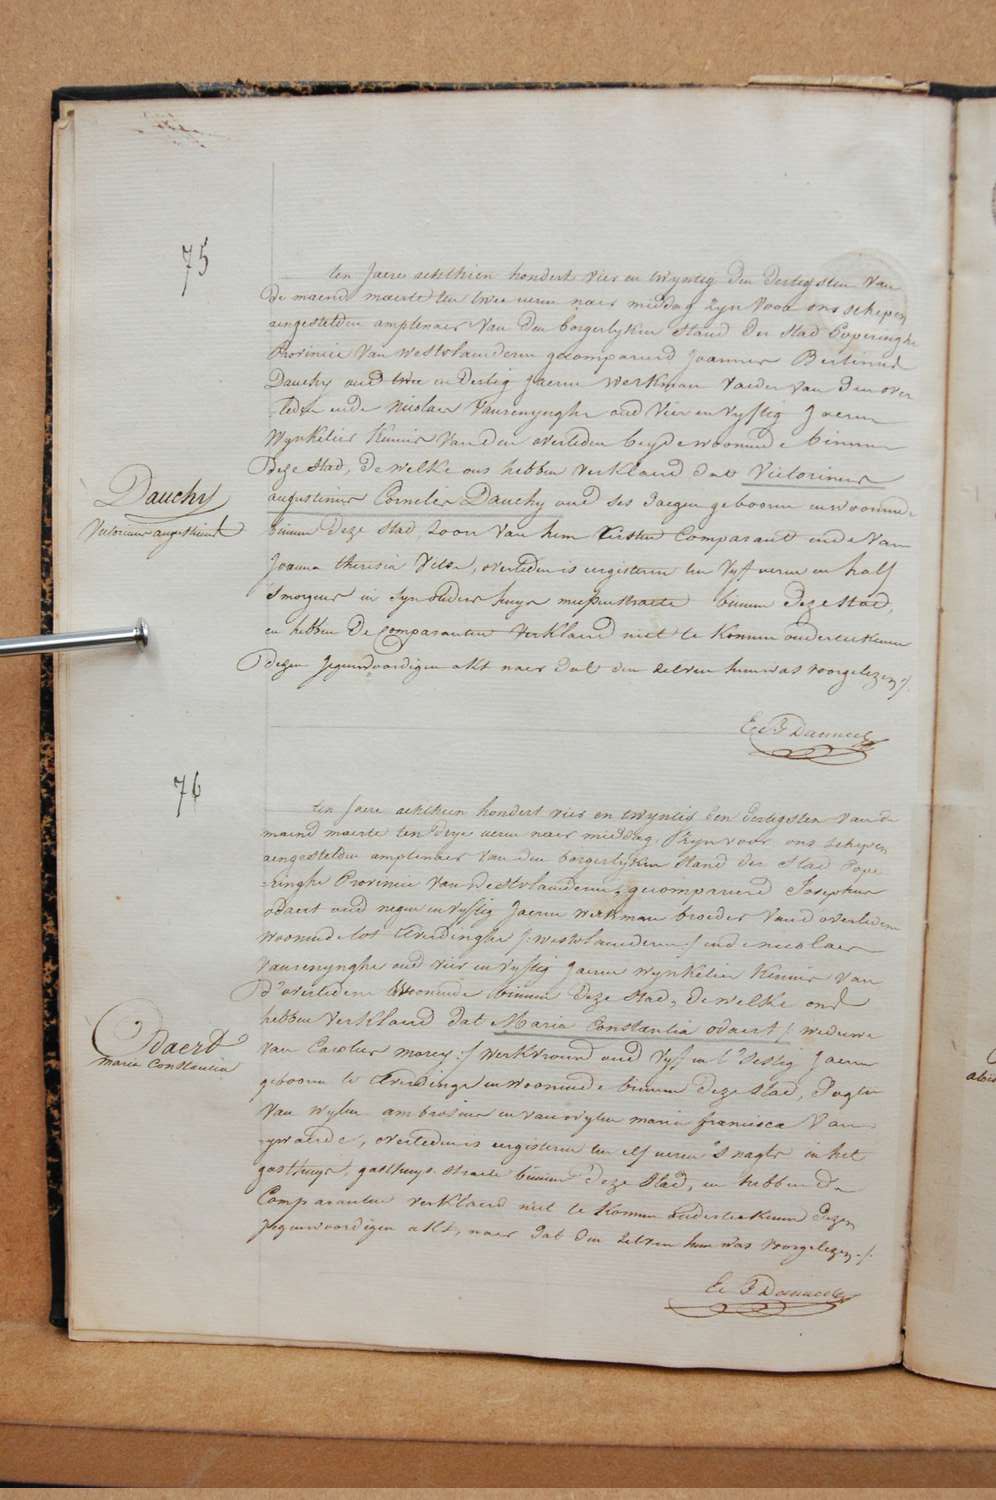 75
ten Jaere achthien hondert vier en twyntig den dertigsten van
de maend maerte ten twee uren naer middag zyn voor ons schepen
aengestelden amptenaer van den borgerlyken stand der stad Poperinghe
Provincie van westvlaenderen gecompareerd Joannes Bertinus
Dauchy oud twee en dertig Jaeren werkman vader van den over
leden ende Nicolaes Vanrenynghe oud vier en vyftig Jaeren
Wynkelier Kennis van den overleden beyde woonende binnen
deze stad, de welke ons hebben verklaerd dat Victorinus
Dauchy
Victorinus augustinus
augustinus Cornelis Dauchy oud ses daegen geboren en woonende
binnen deze stad zoon van hem Eersten Comparant ende van
Joanna theresia overleden is eergisteren ten vyf uren en half
smorgens in syn ouders huys binnen deze stad,
en hebben de Comparanten verklaerd niet te Konnen onderteekenen
dezen jegenwoordigen akt naer dat den zelven hun was voorgelezen ./.
76
ten Jaere achthien hondert vier en twyntig den dertigsten van de
maend maerte ten drye uren naer middag, Zyn voor ons schepen
aengestelden amptenaer van den borgerlyken stand der stad Pope
=ringhe Provincie van Westvlaenderen, gecompareerd Josephus
odaert oud negen en vyftig Jaeren werkman broeder van d'overledene
woonende tot Crudinghe /: westvlaenderen :/ ende nicolaes
Vanrenynghe oud vier en vyftig Jaeren wynkelier Kennis van
d'overledene Woonende binnen deze stad, de welke ons
hebben verklaerd dat Maria Constantia odaert /: weduwe
Odaert
maria Constantia
van Carolus :/ werkvrouw oud vyf en t'sestig Jaeren
geboren te en woonende binnen deze stad, dogter
van wylen ambrosius en van wylen maria francisca Van
overleden is eergisteren ten elf uren s'nagts in het
gasthuys, gasthuys straete binnen deze stad, en hebben de
Comparanten verklaerd niet te Konnen onderteekenen dezen
Jegenwoordigen akt, naer dat den zelven hun was voorgelezen ./.